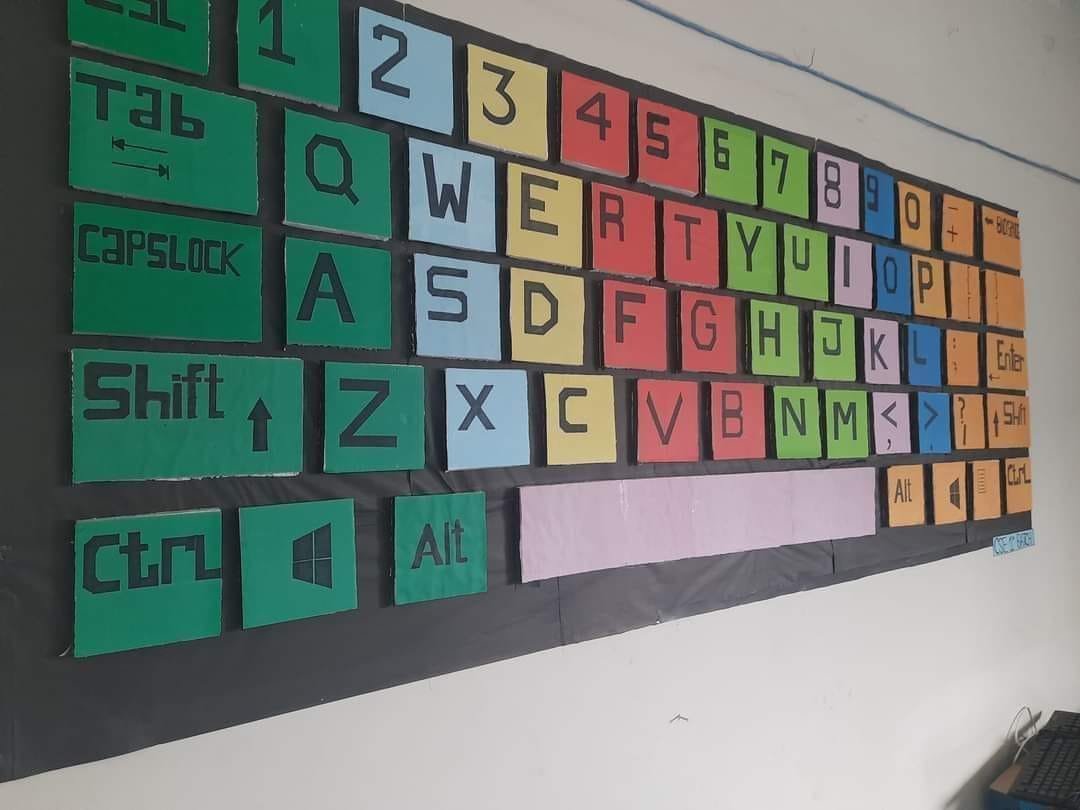 Esc 1 2 3 4 5 6 7 8 9 0 - +
Tab Q W E R T Y U I O P
CAPSLOCK A S D F G H J K L : ; Enter
Shift Z X C V B N M < , > . ? / Shift
Ctrl Alt Alt Ctrl